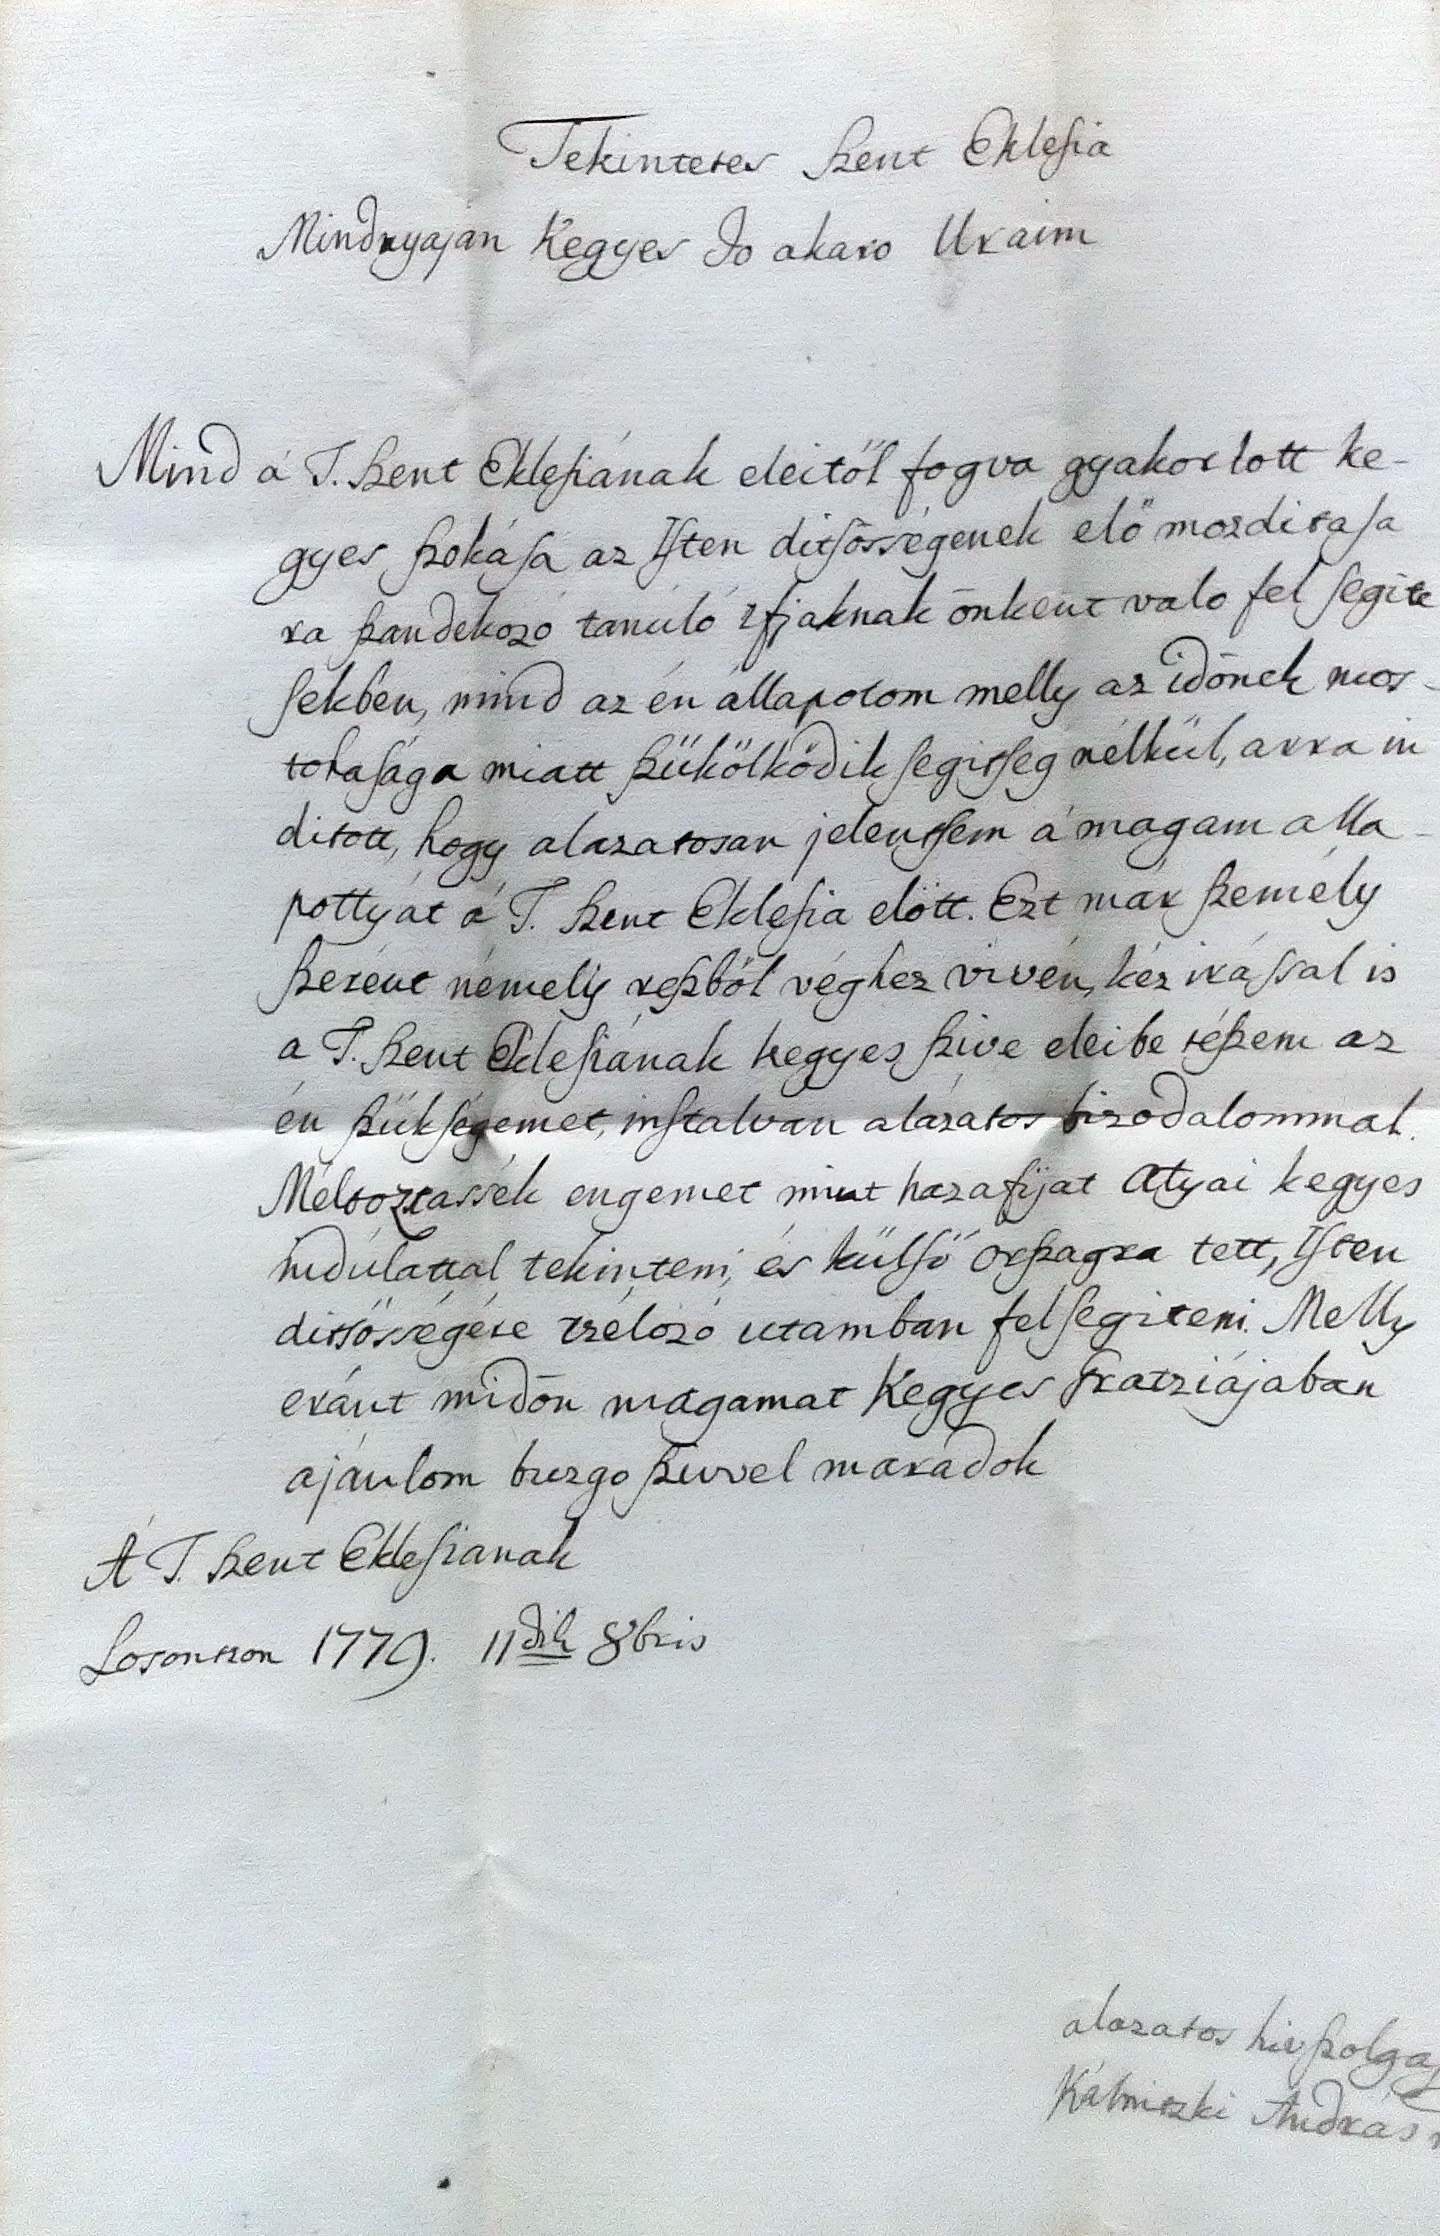 Tekintetes Szent Eklesia
Mindnyajan Kegyes Jo akaro Uraim
Mind á T. Szent Eklesiának eleitöl fogva gyakorlott ke-
gyes szokása az Isten ditsösségenek elö mozditasa
ra szandekozó tanuló Ifjaknak önkent valo fel segite
sekben, mind az én állapotom melly az idönek mos-
tohasága miatt szükölködik segitseg nélkül, arra in
ditott, hogy alazatosan jelentsem á magam alla-
pottyát á T. Szent Eklesia elött. Ezt már szemèly
szerént némely reszböl véghez vivén, kéz irással is
a T. Szent Eklesiának kegyes szive eleibe tészem az
én szükségemet, instalvan alázatos bizodalommal.
Méltoztassék engemet mint hazafijat Atyai kegyes
indúlattal tekinteni, és külsö országra tett, Isten
ditsösségére tzélozó utamban felsegiteni. Melly
eránt midön magamat Kegyes Gratziájaban
ajánlom buzgo szivvel maradok
A T. Szent Eklesianak
Losontzon 1779. 11dik 8bris
alazatos hiv szolgaja
András